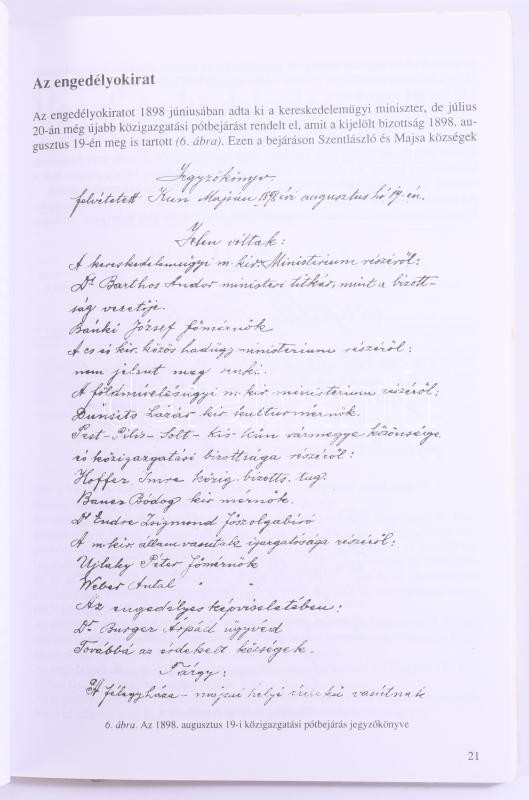 Az engedélyokirat
Az engedélyokiratot 1898 júniusában adta ki a kereskedelemügyi miniszter, de július
20-án még újabb közigazgatási pótbejárást rendelt el, amit a kijelölt bizottság 1898. au-
gusztus 19-én meg is tartott (6. ábra). Ezen a bejáráson Szentlászló és Majsa községek
Jegyzőkönyv.
felvétetett Kun Majsán 1898 évi augusztus hó 19-én.
Jelen voltak:
A kereskedelemügyi m. kir. Ministerium részéről:
Dr Barthos Andor ministeri titkár, mint a bizott-
ság vezetője.
Bánki József főmérnök
A cs és kir. közös hadügyministerium részéről:
nem jelent meg senki.
A földmívelésügyi m. kir ministerium részéről:
Lázár kir kultur mérnök.
Pest-Pilis-Solt-Kis Kún vármegye közönsége
és közigazgatási bizottsága részéről:
Hoffer Imre közig. bizotts. tag.
Bauer Bódog kir mérnök.
Dr Endre Zsigmond főszolgabíró
A m. kir. államvasutak igazgatósága részéről:
Ujlaky Péter főmérnök
Weber Antal " "
Az engedélyes képviseletében:
Dr Burger Árpád ügyvéd
Továbbá az érdekelt községek.
Tárgy:
A félegyháza-majsai helyi érdekű vasútnak
6. ábra. Az 1898. augusztus 19-i közigazgatási pótbejárás jegyzőkönyve
21